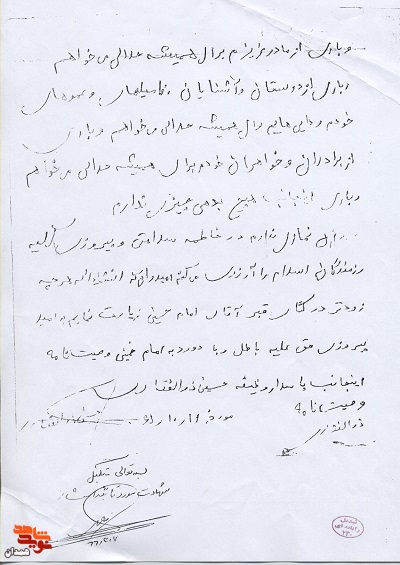 و باری از مادر عزیزم برای همیشه حلالی می‌خواهم
و باری از دوستان و آشنایان و فامیلهای و عموهای
خودم و دایی هایم برای همیشه حلالی می‌خواهم و باری
از برادران و خواهران خودم برای همیشه حلالی می‌خواهم
و باری اینجانب هیچ بدهی چیزی ندارم
نمازی ندارم در خاتمه سلامتی و پیروزی کلیه
رزمندگان اسلام را آرزوی می‌کنم امیدوارم که انشاءاله هر چه
زودتر در کنار قبر آقای امام حسین زیارت نمایم به امید
پیروزی حق علیه باطل و با درود به امام خمینی وصیت نامه
اینجانب پاسدار وظیفه حسین ذوالفقاری
وصیت نامه
ذوالفقاری
مورخه
بسمه تعالی
شهادت مورد تائید است
نوید شاهد
سمنان